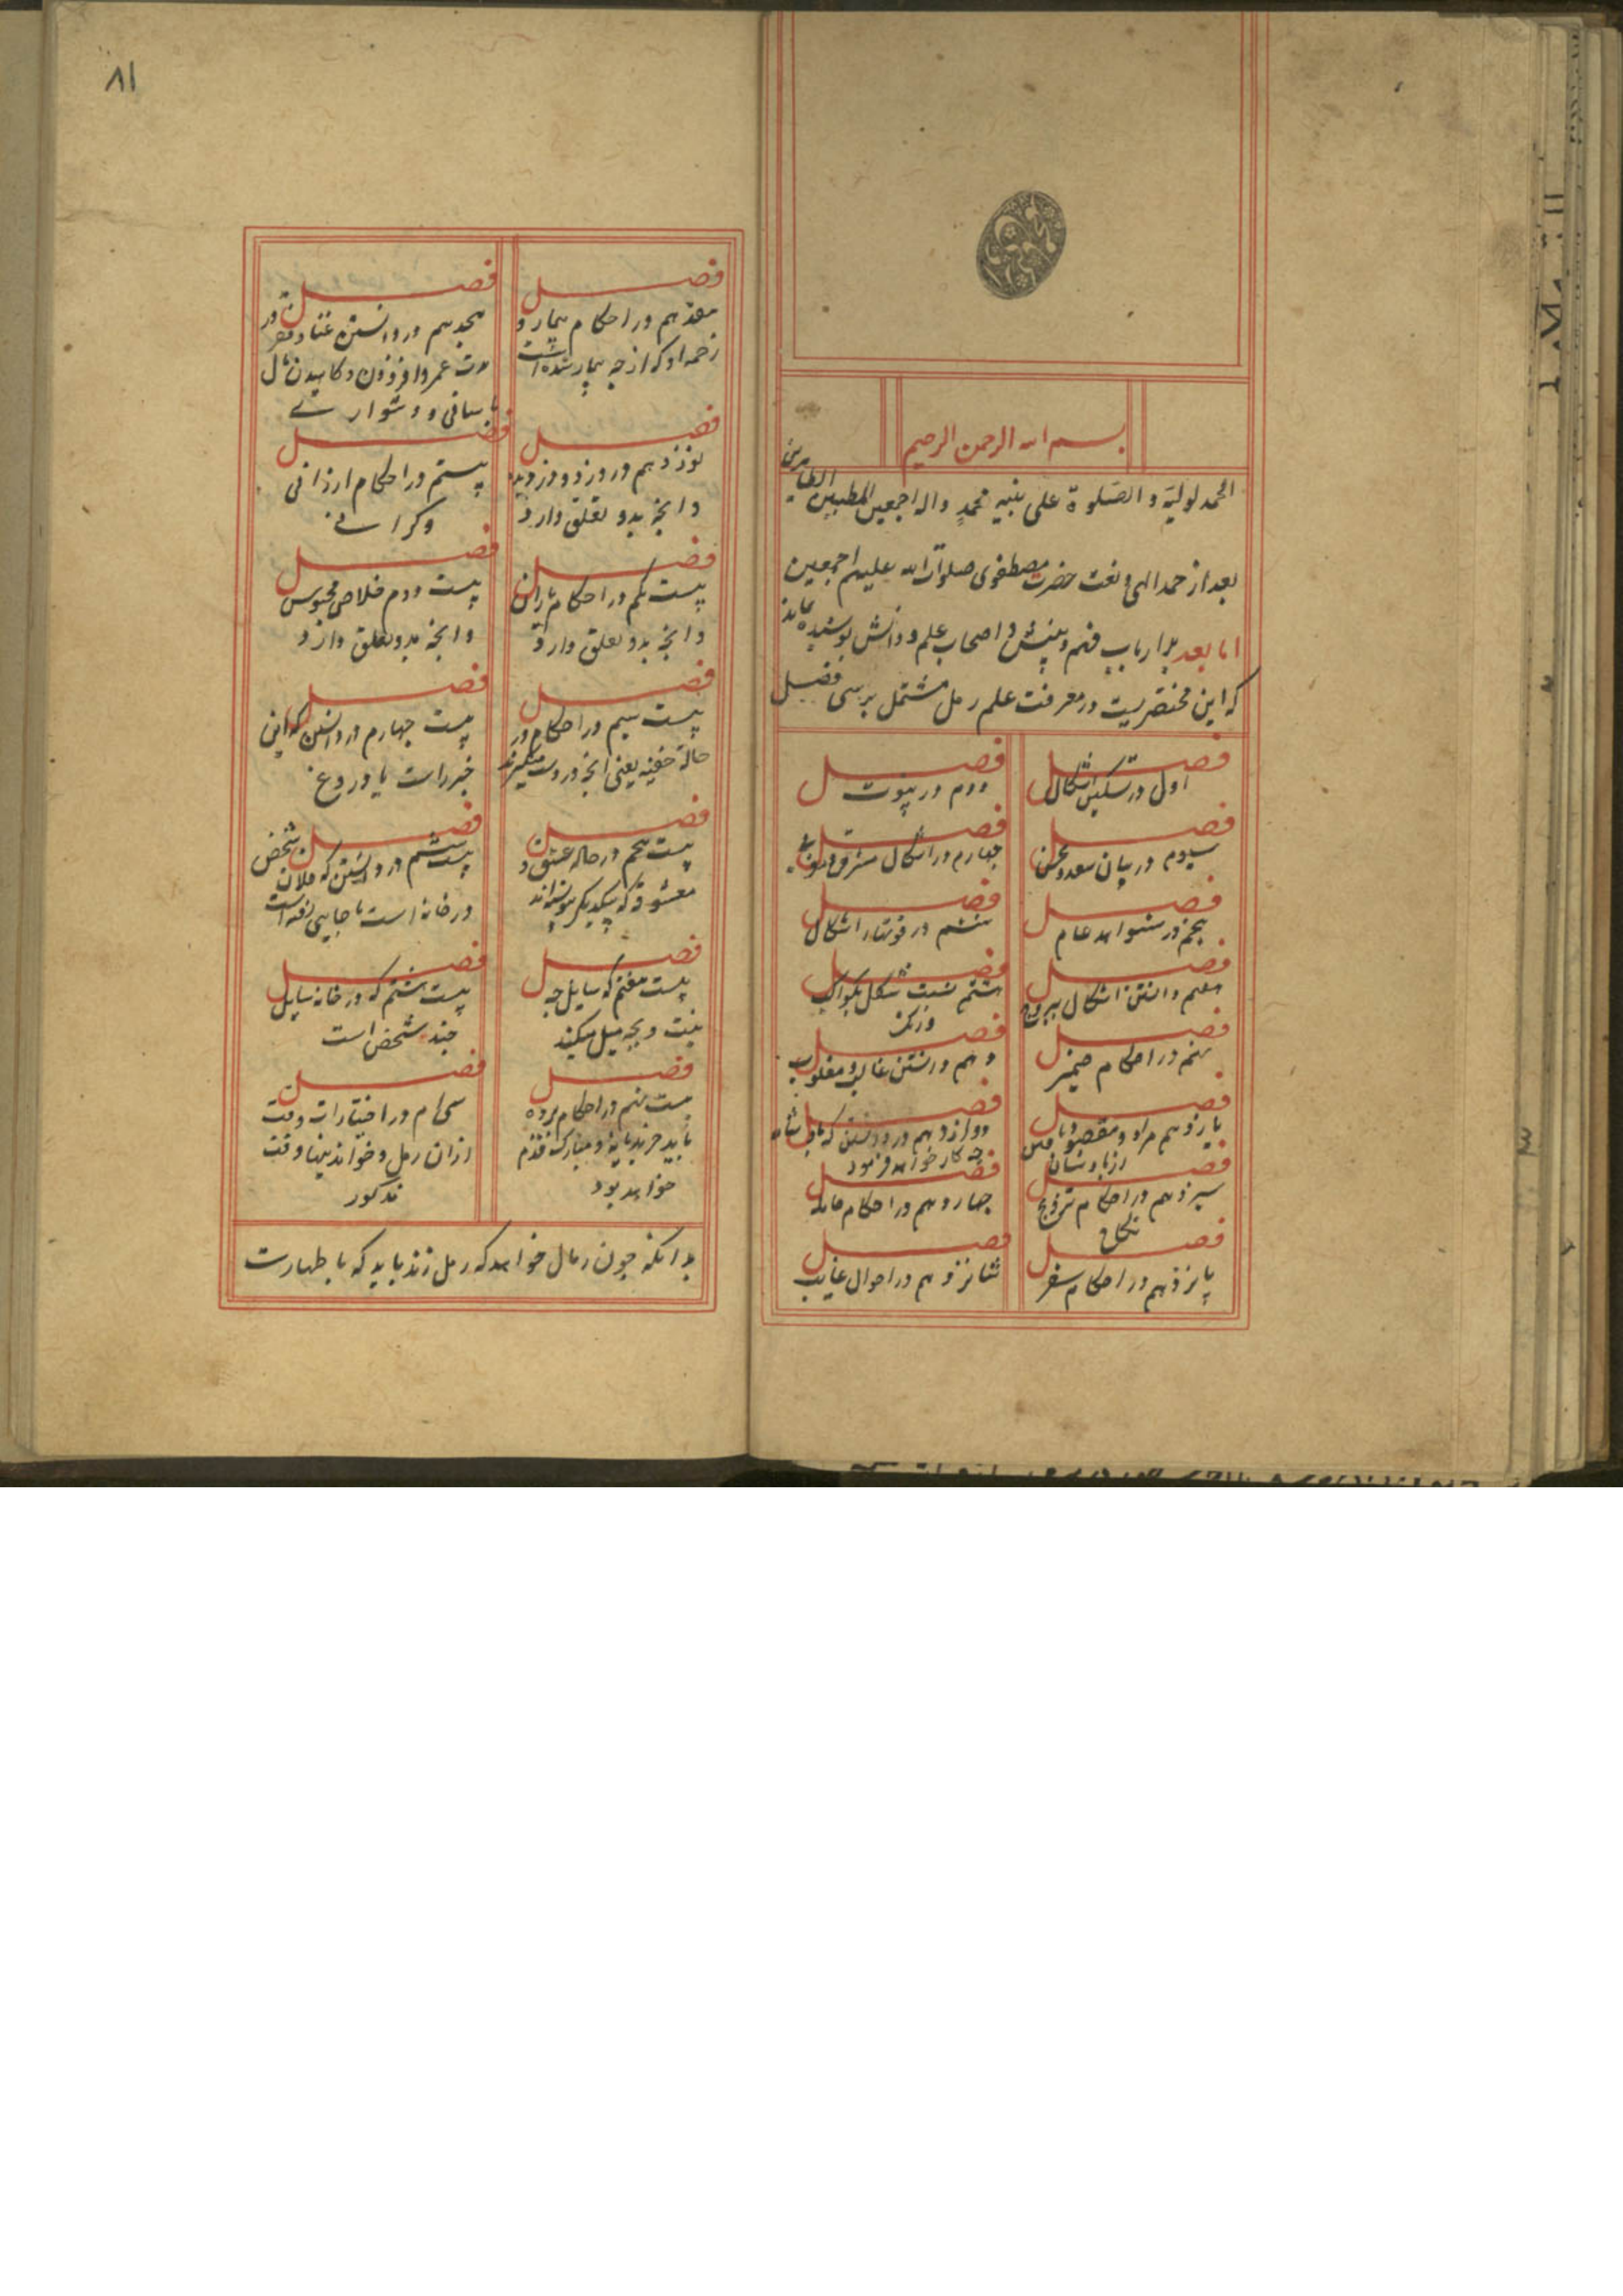 بسم الله الرحمن الرحیم
الحمد لولیه و الصلوة علی نبیه محمد واله اجمعین الطیبین الطاهرین
بعد از حمد الهی و نعت حضرت مصطفوی صلوات الله علیهم اجمعین
اما بعد بر ارباب فهم و بینش و اصحاب علم و دانش پوشیده نماند
که این مختصریست در معرفت علم رمل مشتمل بر سی فصل
فصل
اول در تسکین اشکال
فصل
دوم در بیوت
فصل
سیوم در بیان سعد و نحس
فصل
چهارم در اشکال شرقی و
فصل
پنجم در شواهد عام
فصل
ششم در قوتهاء اشکال
فصل
هفتم دانستن اشکال ببروج
فصل
هشتم نسبت شکل بکواکب
فصل
نهم در احکام ضمیر
فصل
دهم در نستن غالب و مغلوب
فصل
یازدهم مراد و مقصود
از پادشاه
فصل
دوازدهم در دانستن که پادشاه
چه کار خواهد فرمود
فصل
سیزدهم در احکام تزویج
نکاح
فصل
چهاردهم در احکام حامله
فصل
پانزدهم در احکام سفر
فصل
شانزدهم در احوال غایب
۸۱
فصل
هفدهم در احکام بیمار و
زحمه او که از چه بیمار شده است
فصل
هجدهم در دانستن غنا و فقر و
مدت عمر و افزودن و کاهیدن مال
باسانی و دشواری
فصل
نوزدهم در دزد و دزدیده
و انچه بدو تعلق دارد
فصل
بیستم در احکام ارزانی
و کرانی
فصل
بیست یکم در احکام باران
و انچه بدو تعلق دارد
فصل
بیست دوم خلاص محبوس
و انچه بدو تعلق دارد
فصل
بیست سیم در احکام در
حالة خفیه یعنی انچه در دست میگیرند
فصل
بیست چهارم در دانستن که این
خبر راست یا دروغ
فصل
بیست پنجم در حاله عشق و
معشوق که بیکدیگر
فصل
بیست ششم در دانستن که فلان شخص
در خانه است یا جایی رفته است
فصل
بیست هفتم که سایل چه
نیت و بچه میل میکند
فصل
بیست هشتم که در خانه سایل
چند شخص است
فصل
بیست نهم در احکام برده
باید خرید یا نه و مبارک قدم
خواهد بود
فصل
سی ام در اختیارات وقت
زدن رمل و خواندنیها وقت
مذکور
بدانکه چون رمال خواهد که رمل زند باید که با طهارت